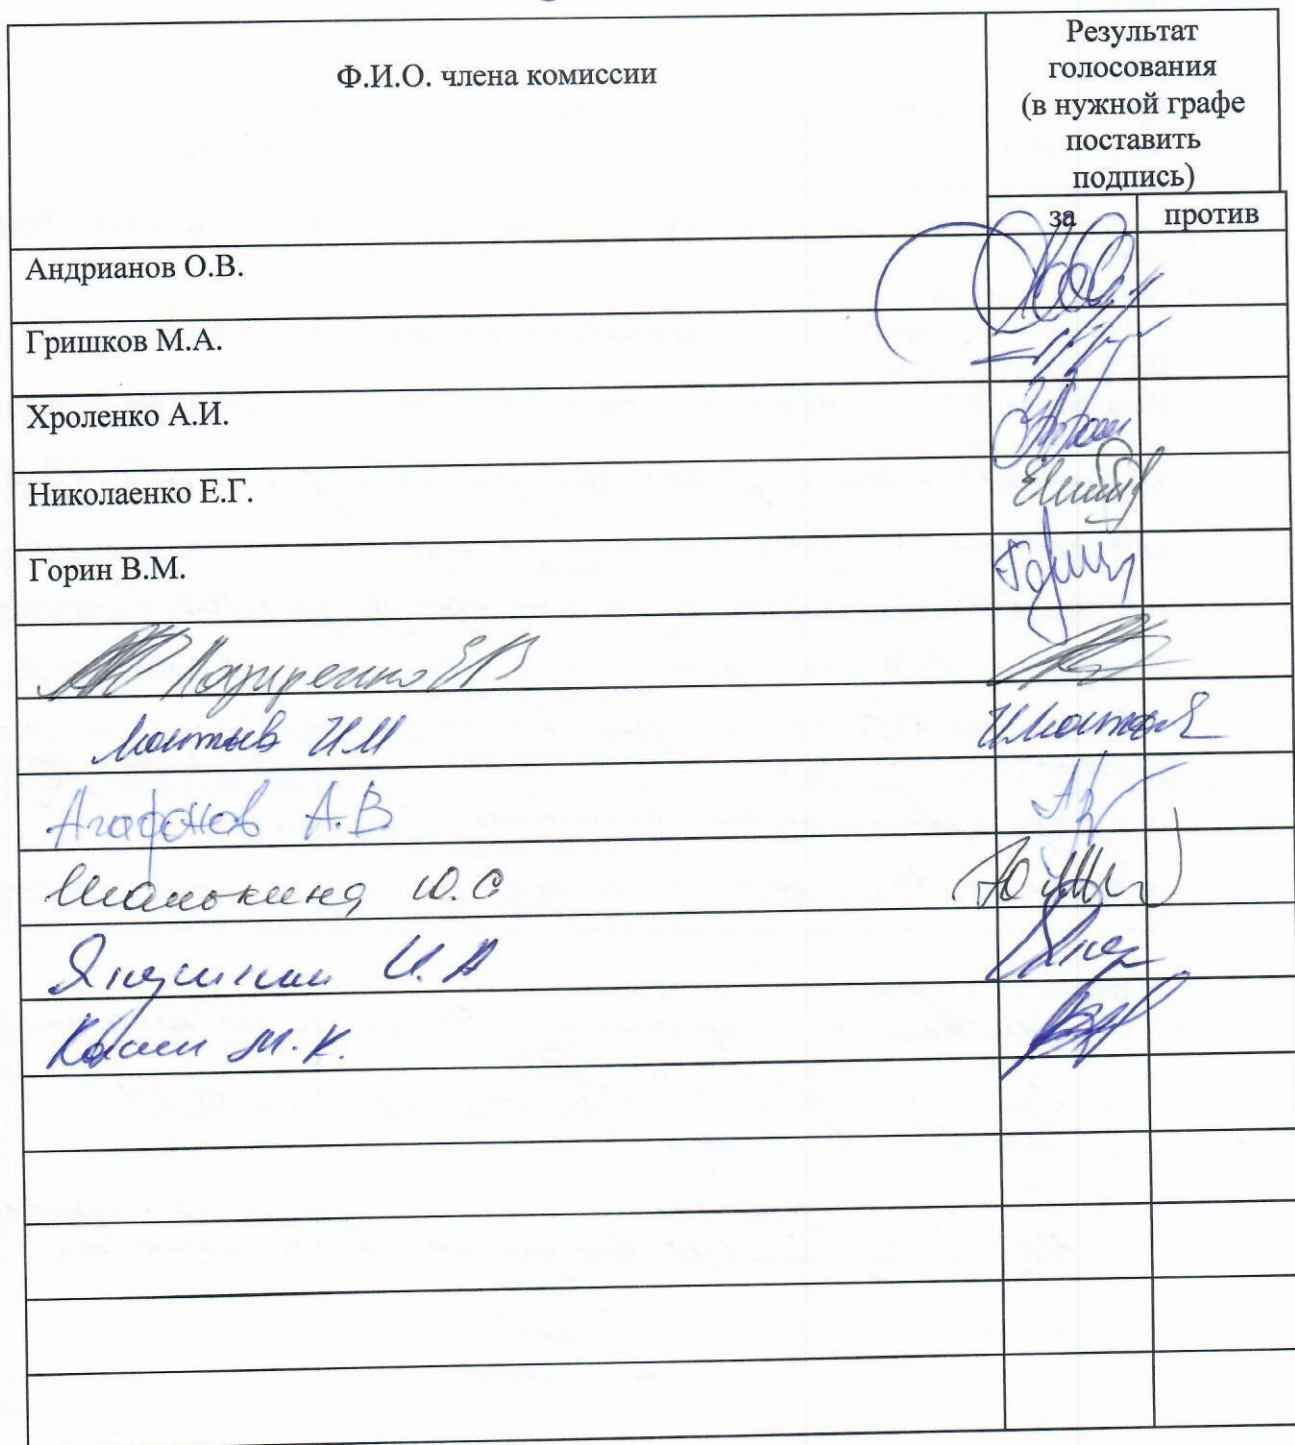 Ф.И.О. члена комиссии
Результат
голосования
(в нужной графе
поставить
подпись)
за
против
Андрианов О.В.
Гришков М.А.
Хроленко А.И.
Николаенко Е.Г.
Горин В.М.
Е В
И М
Агафонов А.В.
Шанькина Ю.С
И.А
М.К.